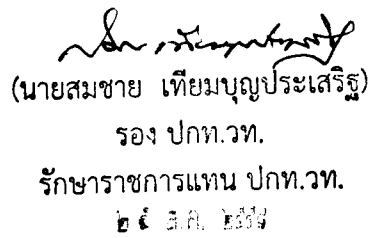 (นายสมชาย เทียมบุญประเสริฐ)
รอง ปกท.วท.
รักษาราชการแทน ปกท.วท.